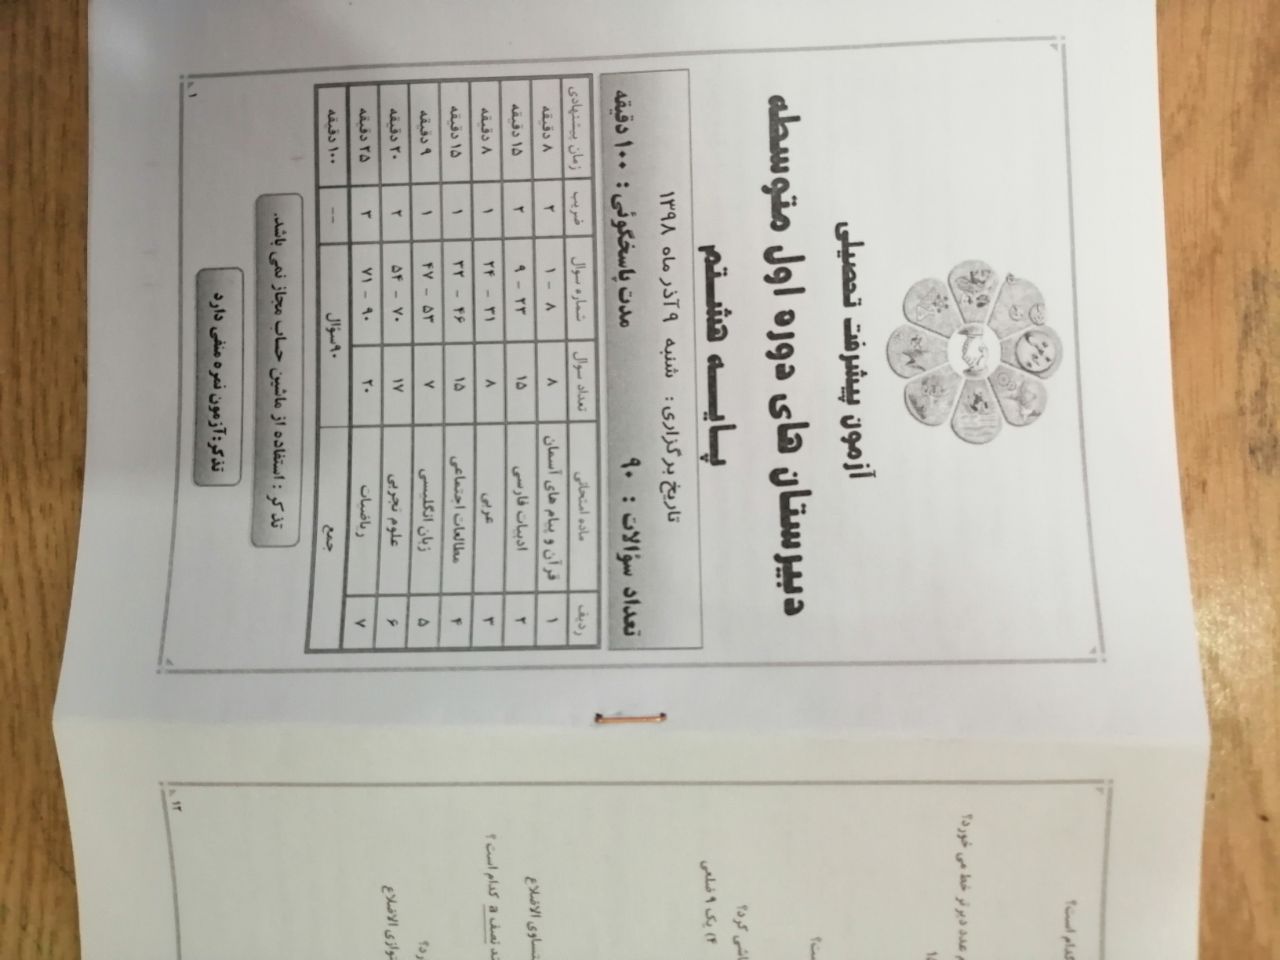 آزمون پیشرفت تحصیلی
دبیرستان های دوره اول متوسطه
پایـــه هشتم
تاریخ برگزاری : شنبه ۹ آذر ماه ۱۳۹۸
تعداد سؤالات : ۹۰ مدت پاسخگوئی : ۱۰۰ دقیقه
ردیف ماده امتحانی تعداد سوال شماره سوال ضریب زمان پیشنهادی
۱ قرآن و پیام های آسمان ۸ ۱ - ۸ ۲ ۸ دقیقه
۲ ادبیات فارسی ۱۵ ۹ - ۲۳ ۲ ۱۵ دقیقه
۳ عربی ۸ ۲۴ - ۳۱ ۱ ۸ دقیقه
۴ مطالعات اجتماعی ۱۵ ۳۲ - ۴۶ ۱ ۱۵ دقیقه
۵ زبان انگلیسی ۷ ۴۷ - ۵۳ ۱ ۹ دقیقه
۶ علوم تجربی ۱۷ ۵۴ - ۷۰ ۲ ۲۰ دقیقه
۷ ریاضیات ۲۰ ۷۱ - ۹۰ ۳ ۲۵ دقیقه
جمع ۹۰ سؤال -- ۱۰۰ دقیقه
تذکر : استفاده از ماشین حساب مجاز نمی باشد.
تذکر: آزمون نمره منفی دارد
۱
کدام است؟
عدد دیرتر خط می خورد؟
۴) یک ۹ ضلعی
نصف a کدام است ؟
۱۲